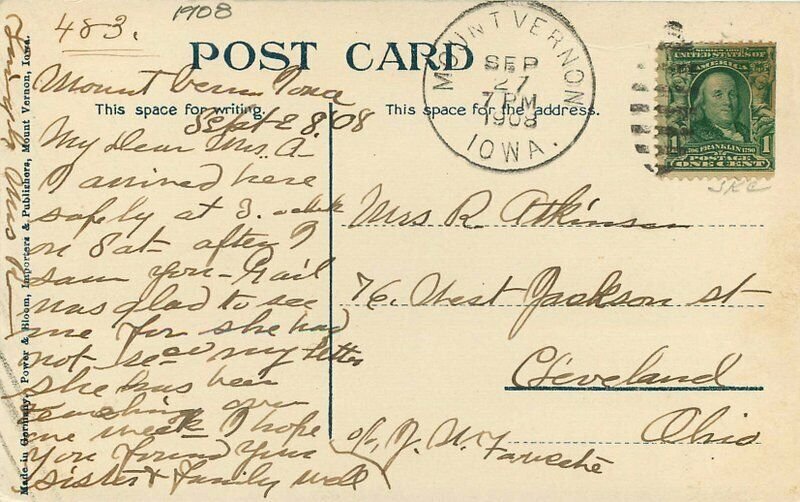 1908
483.
POST CARD
MOUNT VERNON
SEP
27
7 PM
1908
IOWA.
SERIES 1902
UNITED STATES OF
AMERICA
1706 FRANKLIN 1790
1 POSTAGE 1
ONE CENT
This space for writing.
This space for the address.
Mount Vernon Iowa
Sept 28 '08
My Dear Mrs. A-
I arrived here
safely at 3. o'clock
on Sat- after I
saw you- Gail
was glad to see
me for she had
not seen my letter
she has been
teaching over
one week I hope
you found your
sister & family well
Mrs R. Atkinson
76. West Jackson St
Cleveland
Ohio
c/o J. W.
Made in Germany, Power & Bloom, Importers & Publishers, Mount Vernon, Iowa.